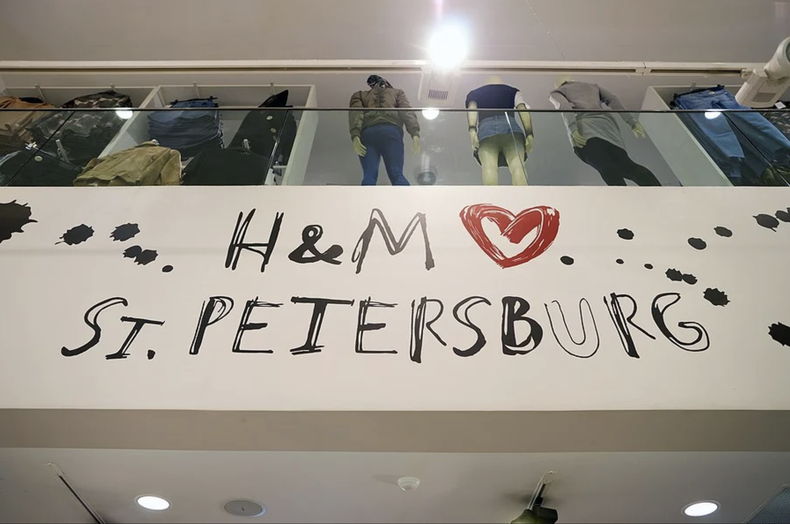 H&M
ST. PETERSBURG